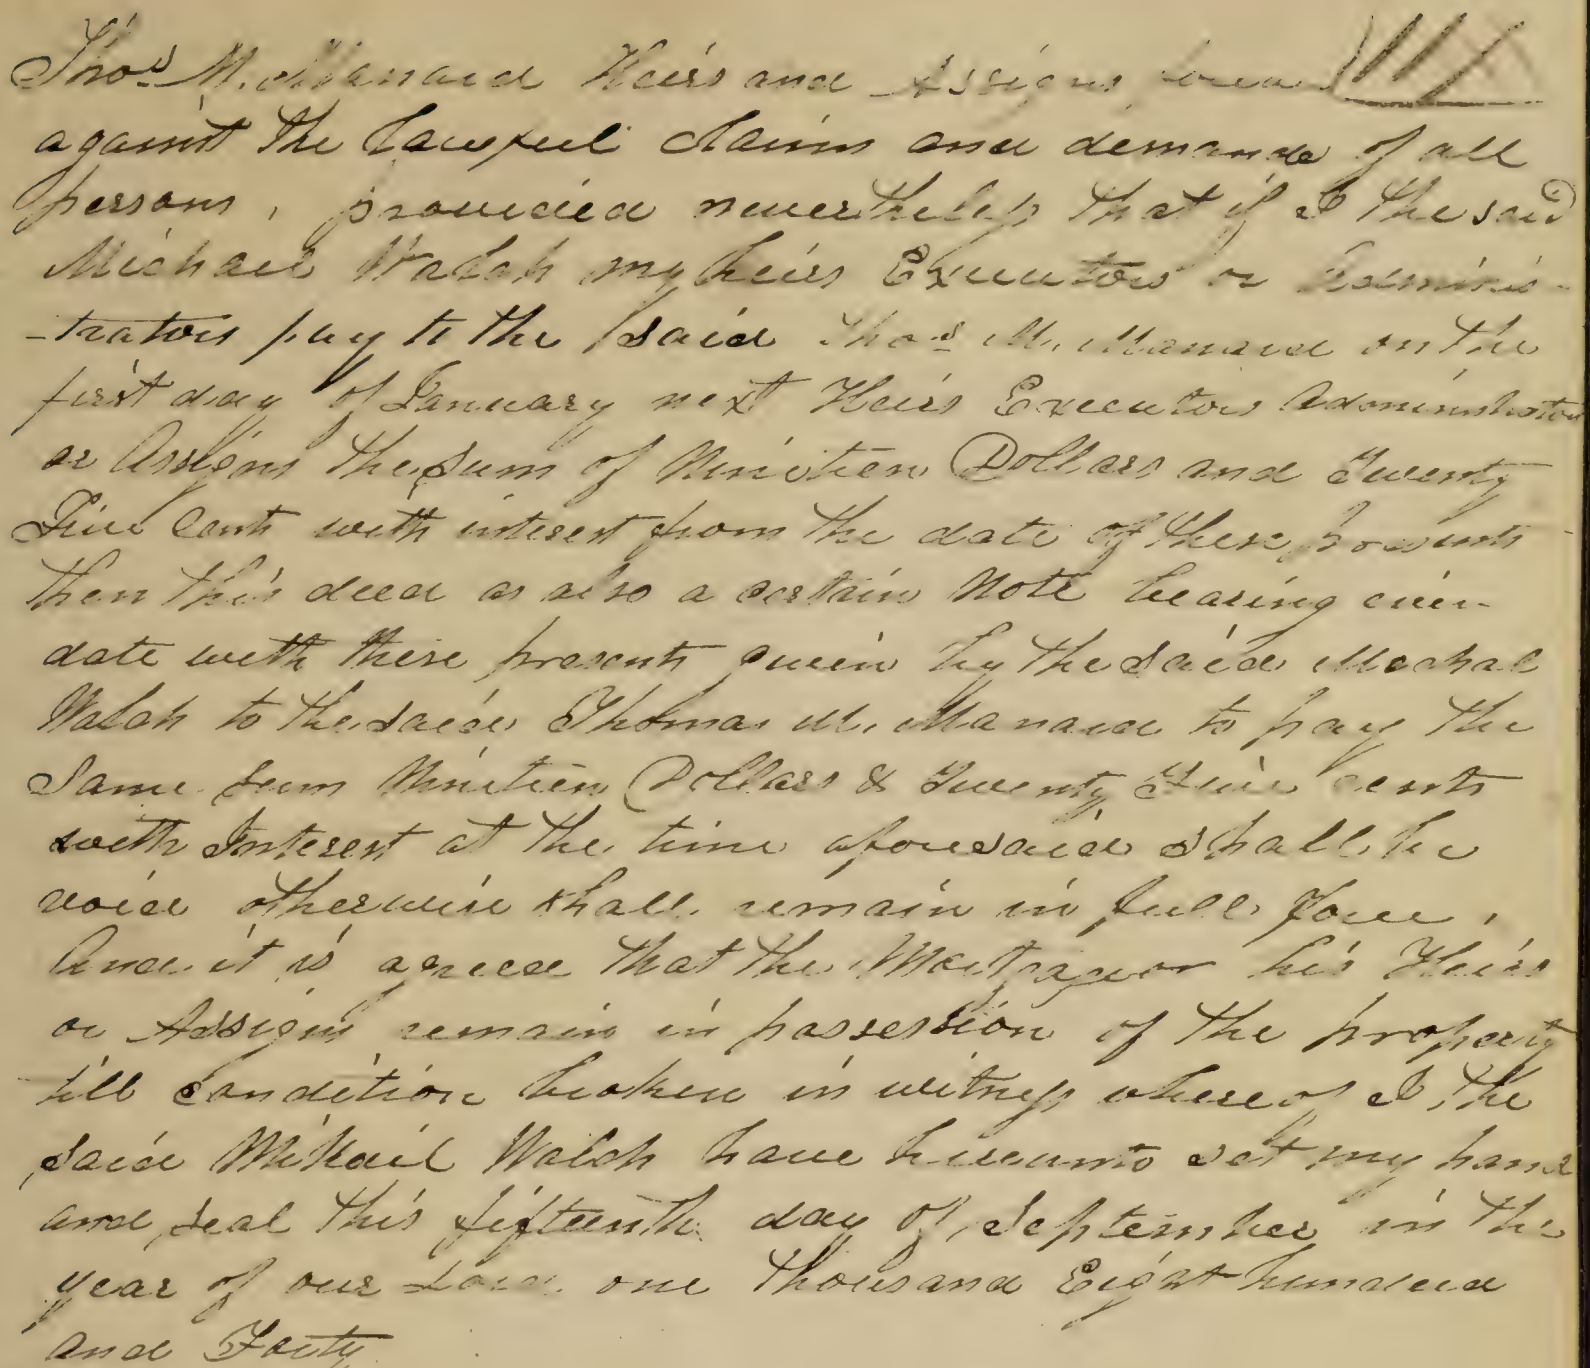 Thos M. Manard Heirs and Assigns
against the lawful claims and demands of all
persons, provided nevertheless that if I the said
Michael Walsh my heirs Executors or Adminis-
-trators pay to the said Thos M. Manard on the
first day of January next Heirs Executors Administrators
or Assigns the sum of Nineteen Dollars and Twenty
Five Cents with interest from the date of these presents
then this deed as also a certain Note bearing even
date with these presents given by the said Mechal
Walsh to the said Thomas M. Manard to pay the
Same Sum Nineteen Dollars & Twenty Five cents
with Interest at the time aforesaid shall be
void otherwise shall remain in full force,
And it is agreed that the Mortgagor his Heirs
or Assigns remain in possession of the property
till condition broken in witness whereof I the
said Mikail Walsh have hereunto set my hand
and seal this fifteenth day of September in the
year of our Lord one thousand Eight hundred
and Forty